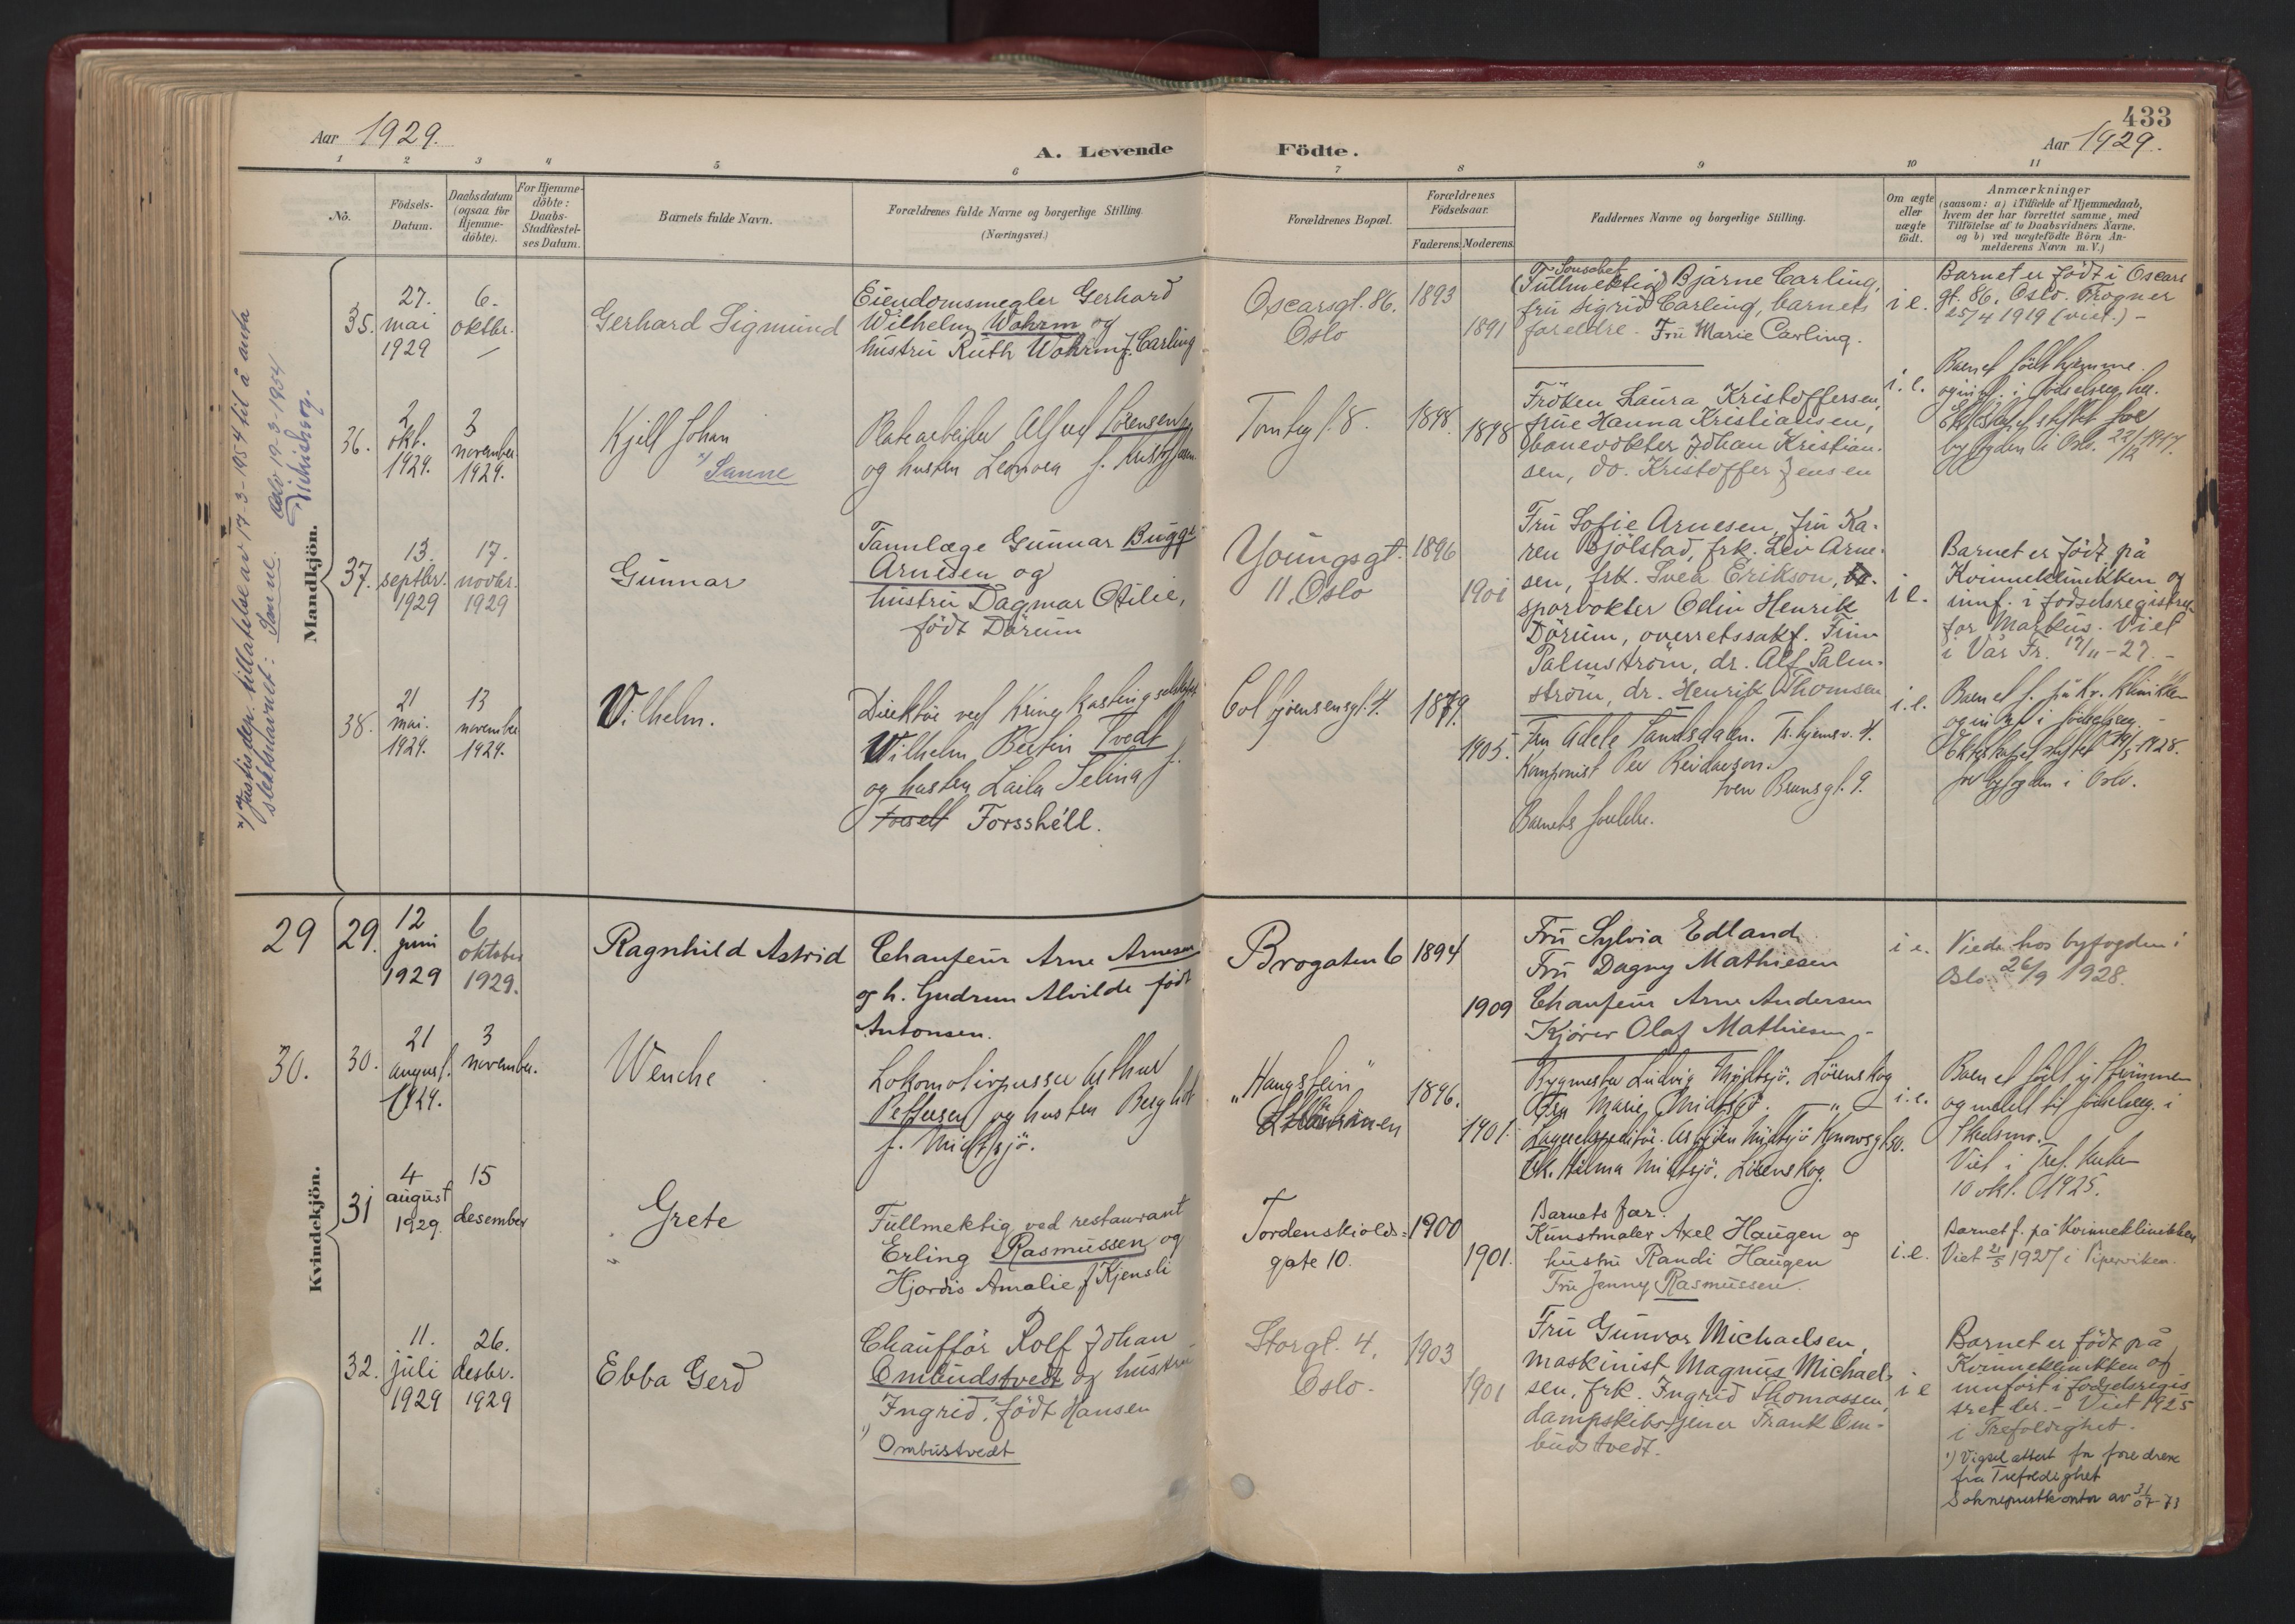 433
Aar 1929.
A. Levende Födte.
Aar 1929.
1 2 3 4 5 6 7 8 9 10 11
No.
Födsels-Datum.
Daabsdatum (ogsaa for Hjemme-döbte).
For Hjemme-döbte: Daabs-Stadfæstel-ses Datum.
Barnets fulde Navn.
Forældrenes fulde Navne og borgerlige Stilling.
(Næringsvei.)
Forældrenes Bopæl.
Forældrenes Födselsaar.
Faderens. Moderens.
Faddernes Navne og borgerlige Stilling.
Om ægte eller uægte födt.
Anmærkninger
(saasom: a) i Tilfælde af Hjemmedaab,
hvem der har forrettet samme, med
Tilföielse af to Daabsvidners Navne.
og b) ved uægtefödte Börn An-
melderens Navn m. V.)
Mandkjön.
x) Justisdep. tillatelse av 17-3-1954 til å anta
slektsnavnet: Sanne. Oslo 19-3-1954
35.
27.
mai
1929
6.
oktbr.
Gerhard Sigmund
Eiendomsmegler Gerhard
Wilhelm Wohrm og
hustru Ruth Wohrm f. Carling
Oscarsgt. 86.
Oslo
1893
1891
(Fullmektig) Bjarne Carling,
fru Sigrid Carling, barnets
foreldre. Fru Marie Carling.
i e.
Barnet er født i Oscars
gt. 86. Oslo. Frogner
25/4 1919 (viet.) -
36.
2
okt.
1929.
3
november
1929.
Kjell Johan
x) Sanne
Platearbeider Alfred Sörensen
og hustru Leonora f. Kristoffersen
Tomteg t. 8.
1898.
1898
Fröken Laura Kristoffersen,
frue Hanna Kristiansen,
banevokter Johan Kristian-
sen, do. Kristoffer Jensen
i. e.
Barnet født hjemme.
og innf. i fødselsreg. her.
Ekteskapet stiftet for
byfogden i Oslo. 22/12 1917.
37.
13.
septbr.
1929
17.
novbr.
1929
Gunnar
Tannlæge Gunnar Bugge
Arnesen og
hustru Dagmar Otilie,
født Dörum
Youngsgt.
11, Oslo
1896
1901
Fru Sofie Arnesen, fru Ka-
ren Bjölstad, frk. Liv Arne-
sen, frk. Svea Erikson,
sporvokter Odin Henrik
Dörum, overretssakf. Finn
Palmström, dr. Alf Palm-
ström, dr. Henrik Thomsen
i e.
Barnet er født på
Kvinneklinikken og
innf. i fødselsregistret
for Markus. Viet
i Vår Fr. 17/11-27. -
38.
21
mai.
1929.
13
november
1929.
Vilhelm.
Direktör ved Kringkastingselskapet
Wilhelm Bertin Tvedt
og hustru Laila Selina f.
Forsshéll.
Colbjørnsensgt. 4.
1879.
1905.
Fru Adele Sandsdalen. Ts. hjemsv. 4.
Komponist Per Reidarson.
Iven Bruns gt. 9.
Barnets foreldre.
i. e.
Barnet f. på Kv. klinikken
og innført i fødselsreg. -
Ekteskapet stiftet 1928.
for byfogden i Oslo.
Kvindekjön.
29 29.
12
juni
1929
6
oktober
1929.
Ragnhild Astrid
Chaufeur Arne Arnesen
og h. Gudrun Alvilde født
Antonsen.
Brogaten 6
1894
1909
Fru Sylvia Edland
Fru Dagny Mathiesen
Chaufeur Arne Andersen
Kjører Olaf Mathiesen -
i e.
Viede hos byfogden i
Oslo 26/9 1928.
30. 30.
21
august.
1929.
3
november.
Wenche
Lokomotivpusser Arthur
Pettersen og hustru Berghot
f. Midtsjö.
"Haugstein"
1896.
1901.
Bygmester Ludvig Midtsjö. Lörenskog
Fru Marie Midtsjö. — " —
Lagerekspeditör. Asbjörn Midtsjö
Frk. Hilma Midtsjö. Lörenskog.
i. e.
Barnet født i
og meldt til fødselsreg. i
Skedsmo.
Viet i Tref. kirke
10 okt. 1925.
31
4
august
1929.
15
desember
Grete
Fullmektig ved restaurant
Erling Rasmussen og
Hjordis Amalie f Kjensli
Tordenskiolds-
gate 10.
1900
1901.
Barnets far.
Kunstmaler Axel Haugen og
hustru Randi Haugen
Fru Jenny Rasmussen.
i. e.
Barnet f. på Kvinneklinikken
Viet 21/5 1927 i Piperviken.
32.
11.
juli
1929
26.
desbr.
1929
Ebba Gerd
Chauffør Rolf Johan
Ombudstvedt og hustru
Ingrid, født Hansen
1) Ombustvedt
Storgt. 4.
Oslo.
1903
1901
Fru Gunvor Michaelsen,
maskinist Magnus Michael-
sen, frk. Ingrid Thomassen,
dampskibs Frank Om-
budstvedt.
i e
Barnet er født på
Kvinneklinikken og
innført i fødselsregis
tret der. - Viet 1925
i Trefoldighet.
1) Vigselattest for foreldrene
fra Trefoldighet
Sokneprestkontor av 31/07-73